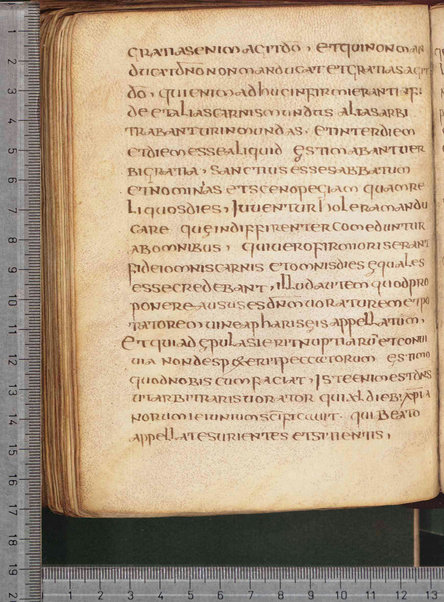 gratias enim agit dō, et qui non man
ducat dn̄o non manducat et gratias agit
dō, qui enim adhuc infirmi erant in fi
de et alias carnis mundas alias arbi
trabantur inmundas, et inter diem
et diem esse aliquid estimabant uer
bi gratia, sanctius esse sabbatum
et neominias et scenopegiam quam re
liquos dies, iubentur holera mandu
care que indifferenter comeduntur
ab omnibus, qui uero firmioris erant
fidei omnis carnis et omnis dies ęquales
esse credebant, illud autem quod pro
ponere ausus es dnm̄ uoraturem et po
tatorem uine a phariseis appellatum,
et qui ad epulas ierit nuptiarū et conui
uia non desp&erit peccatorum estimo
quod nobiscum faciat, iste enim est dn̄s
ut arbitraris uorator qui xl dieb; xp̄ia
norum ieiunium scīficauit. qui beato
appellat esurientes et sitientiis,
1
2
3
4
5
6
7
8
9
10
11
12
13
14
15
16
17
18
19
2
1 2 3 4 5 6 7 8 9 10 11 12 13